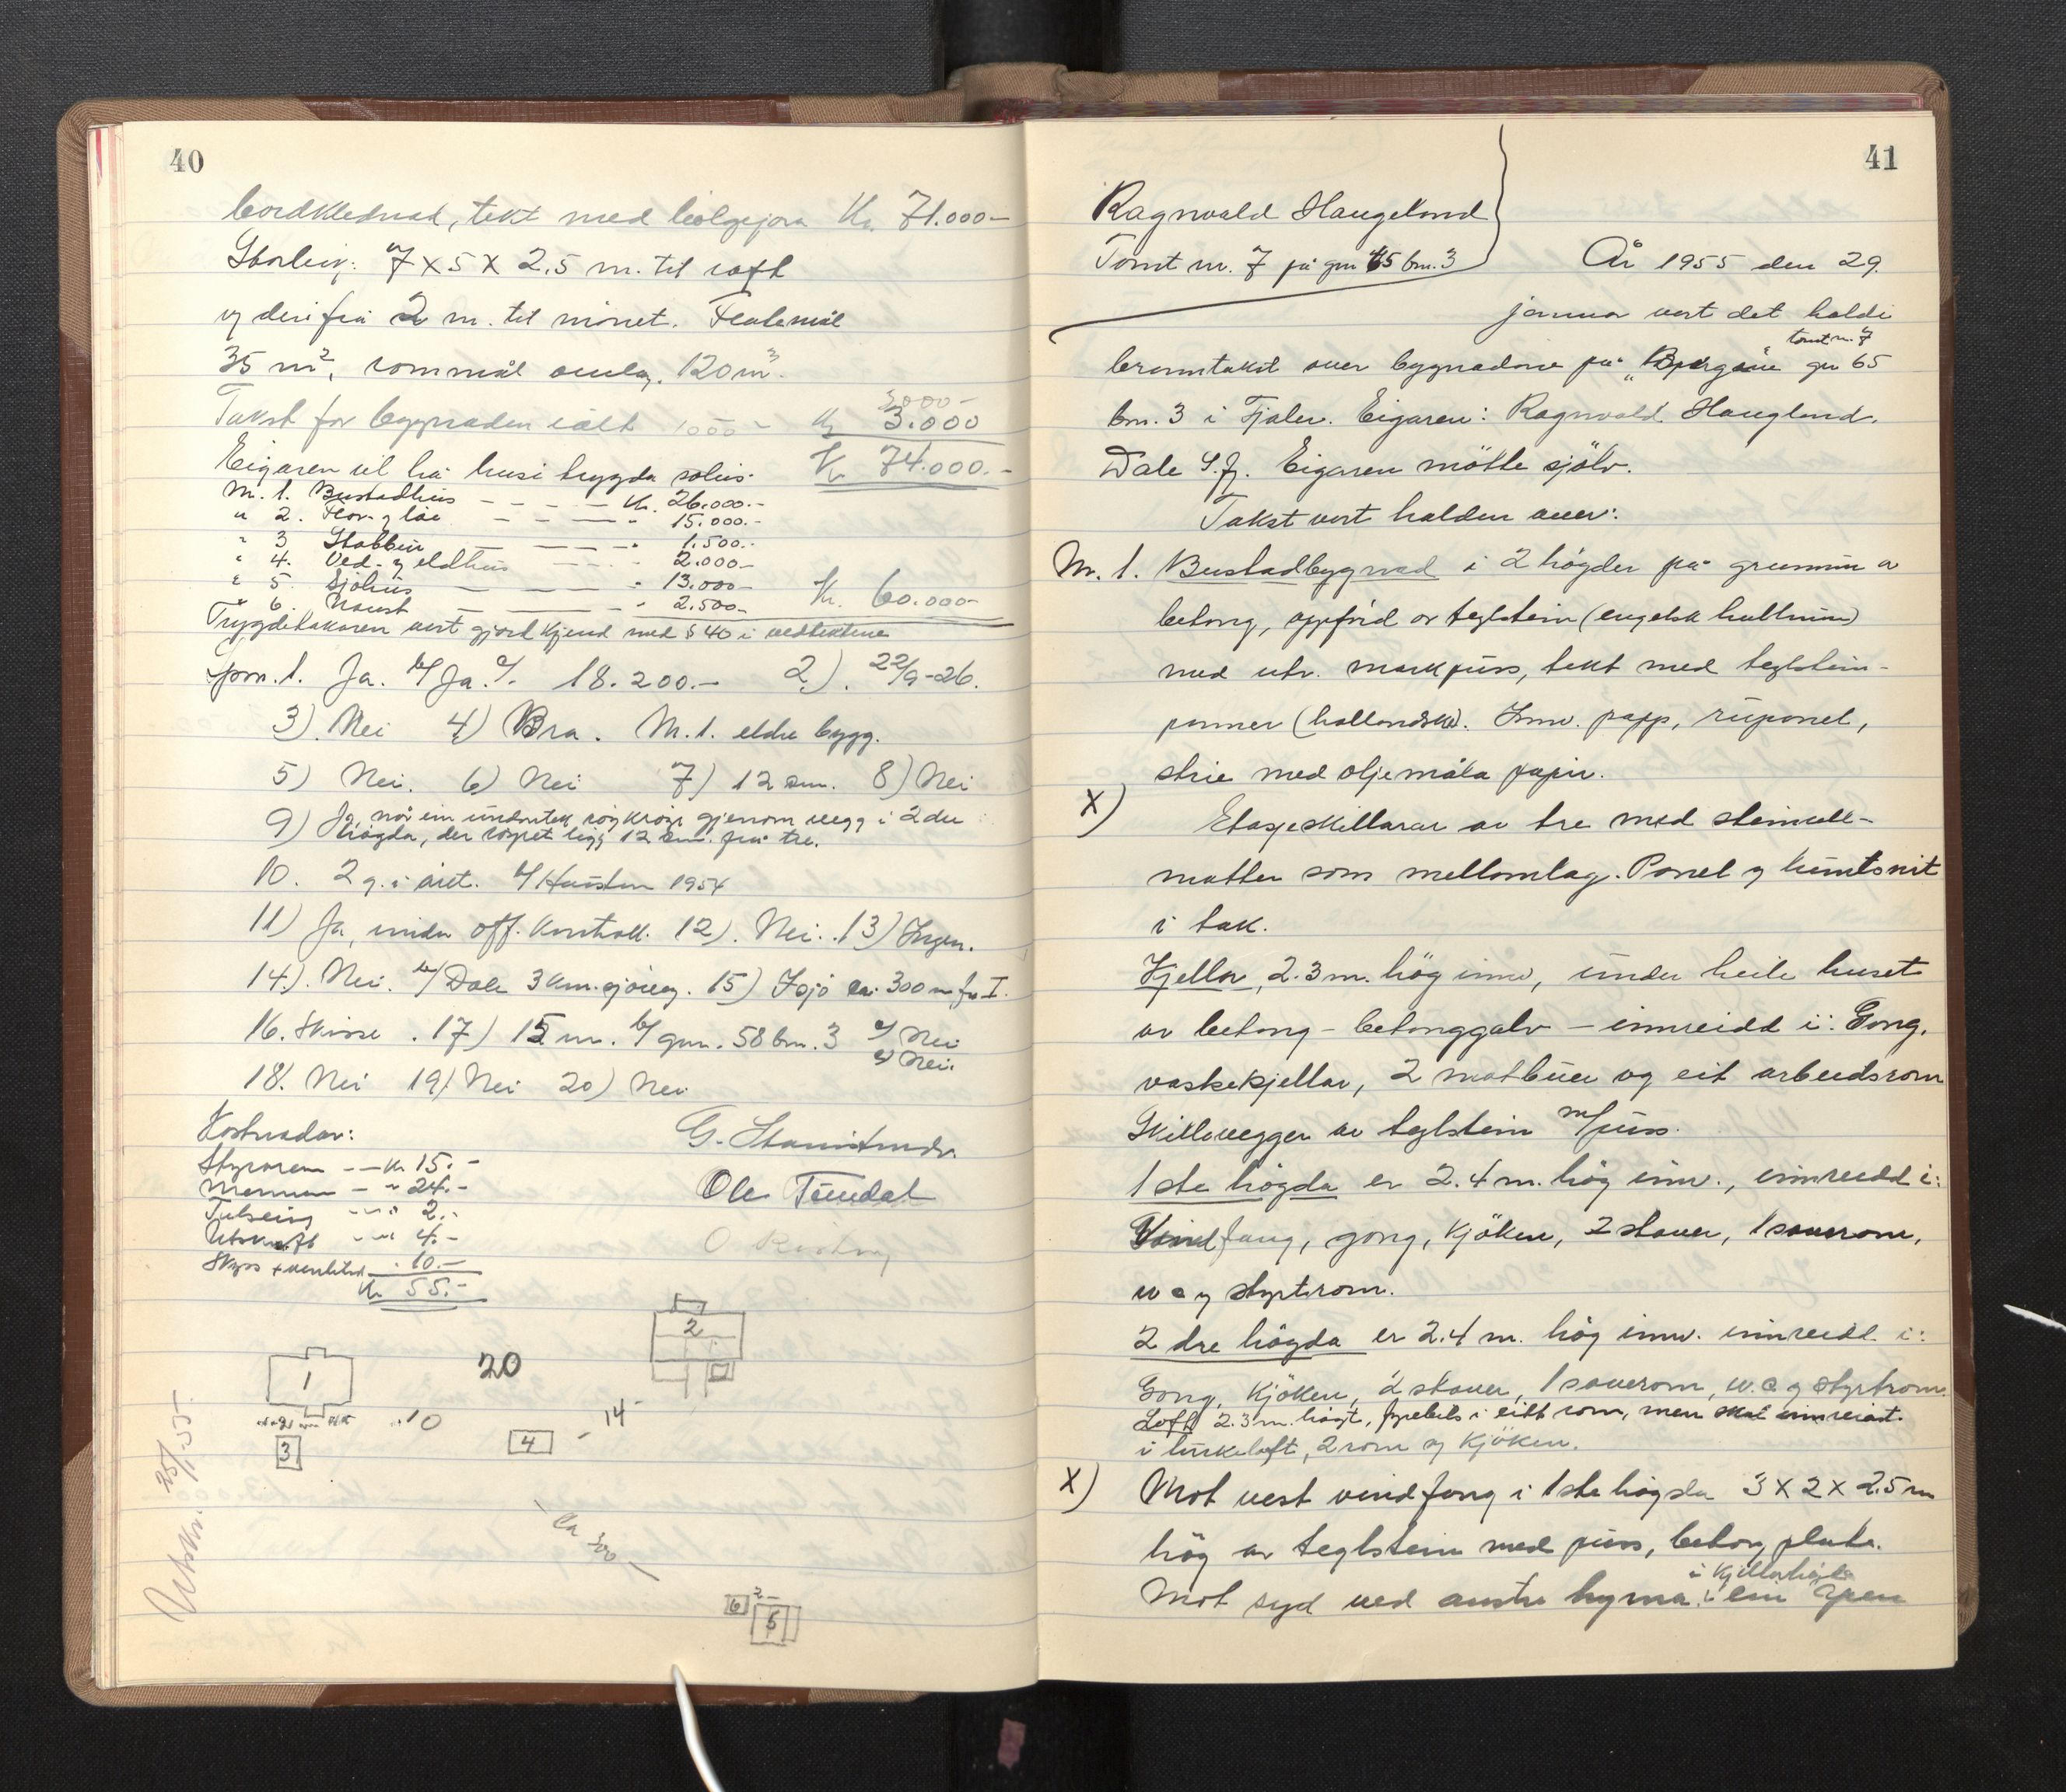 40
bordklednad, tekt med bølgjejern Kr. 71.000-
Storleik: 7 x 5 x 2.5 m. til raft
og derifrå 2 m. til mønet. Flatemål
35 m², rommål omlag. 120 m³.
3000-
Takst for bygnaden ialt 1000- Kr 3.000
Eigaren vil ha husi trygda solis: Kr 74.000.-
Nr. 1. Bustadhus - - - - Kr. 26.000.-
" 2. Flor- og løe - - - - " 15.000.-
" 3 Stabbur - - - - " 1.500.-
" 4. Ved- og eldhus - - - - 2.000-
" 5. Sjøhus - - - - " 13.000-
" 6. Naust - - - - " 2.500- Kr. 60.000-
Trygdetakaren vert gjort kjend med § 40 i vedtektene
Spm. 1. Ja. b/ Ja. c/. 18.200.- 2). 22/9-26.
3) Nei 4) Bra. Nr. 1. eldre bygg.
5) Nei. 6) Nei 7) 12 cm. 8) Nei
9) Ja, når ein undantek røykrøyr gjenom vegg i 2dre
høgda, der røyret ligg 12 cm. frå tre.
10. 2 g. i året. b/ Hausten 1954
11) Ja, under off. kontroll. 12). Nei. 13) Ingen.
14). Nei. b/ Dale 3 km. sjøveg. 15) I sjø ca. 300 m fr I.
16. Skisse. 17) 15 m. b/ gnr. 58 bnr. 3 c/ Nei
d/ Nei.
18. Nei 19) Nei 20) Nei
Kostnader:
Styraren - - Kr 15.-
Mennene - - " 24.-
Tilseing - - " 2.-
Utskrift - - " 4.-
Skyss + " 10.-
Kr 55.-
G.
Ole Tundal
1
20
2
10
14
3
4
ca 300
6
2
5
Utskr. 25/1.55.
41
Ragnvald Haugeland
Tomt nr. 7 på gnr 65 bnr. 3
År 1955 den 29.
januar vart det haldi
tomt nr. 7
branntakst over bygnadene på "Bjørgane gnr 65
bnr. 3 i Fjaler. Eigaren: Ragnvald Haugland.
Dale S.fj. Eigaren møtte sjølv.
Takst vert halden over:
Nr. 1. Bustadbygnad i 2 høgder på grunnmur av
betong, oppførd av teglstein (engelsk hullmur)
med utv. mørkpuss, tekt med teglstein-
panner (hollandske). Innv. papp, rupanel,
strie med oljemåla papir.
x) Etasjeskillarar av tre med steinull-
matter som mellomlag. Panel og kunstsnit
i tak.
Kjellar, 2.3 m. høg innv, under heile huset
av betong - betonggolv - innreidd i: Gong,
vaskekjellar, 2 matbuer og eit arbeidsrom
Skillevegger av teglstein m/puss.
1ste høgda er 2.4 m. høg innv., innreidd i:
Vindfang, gong, kjøken, 2 stover, 1 soverom,
w c og styrtrom.
2dre høgda er 2.4 m. høg innv. innreidd i:
Gong, kjøken, 2 stover, 1 soverom, w.c og styrtrom.
Loft 2.3 m. høgt, førebels i eitt rom, men skal innreiast
i turkeloft, 2 rom og kjøken.
x) Mot vest vindfang i 1ste høgda 3 x 2 x 2.5 m
høg av teglstein med puss, betong plate.
i kjellarhøgda
Mot syd ved austre hyrna: ein open